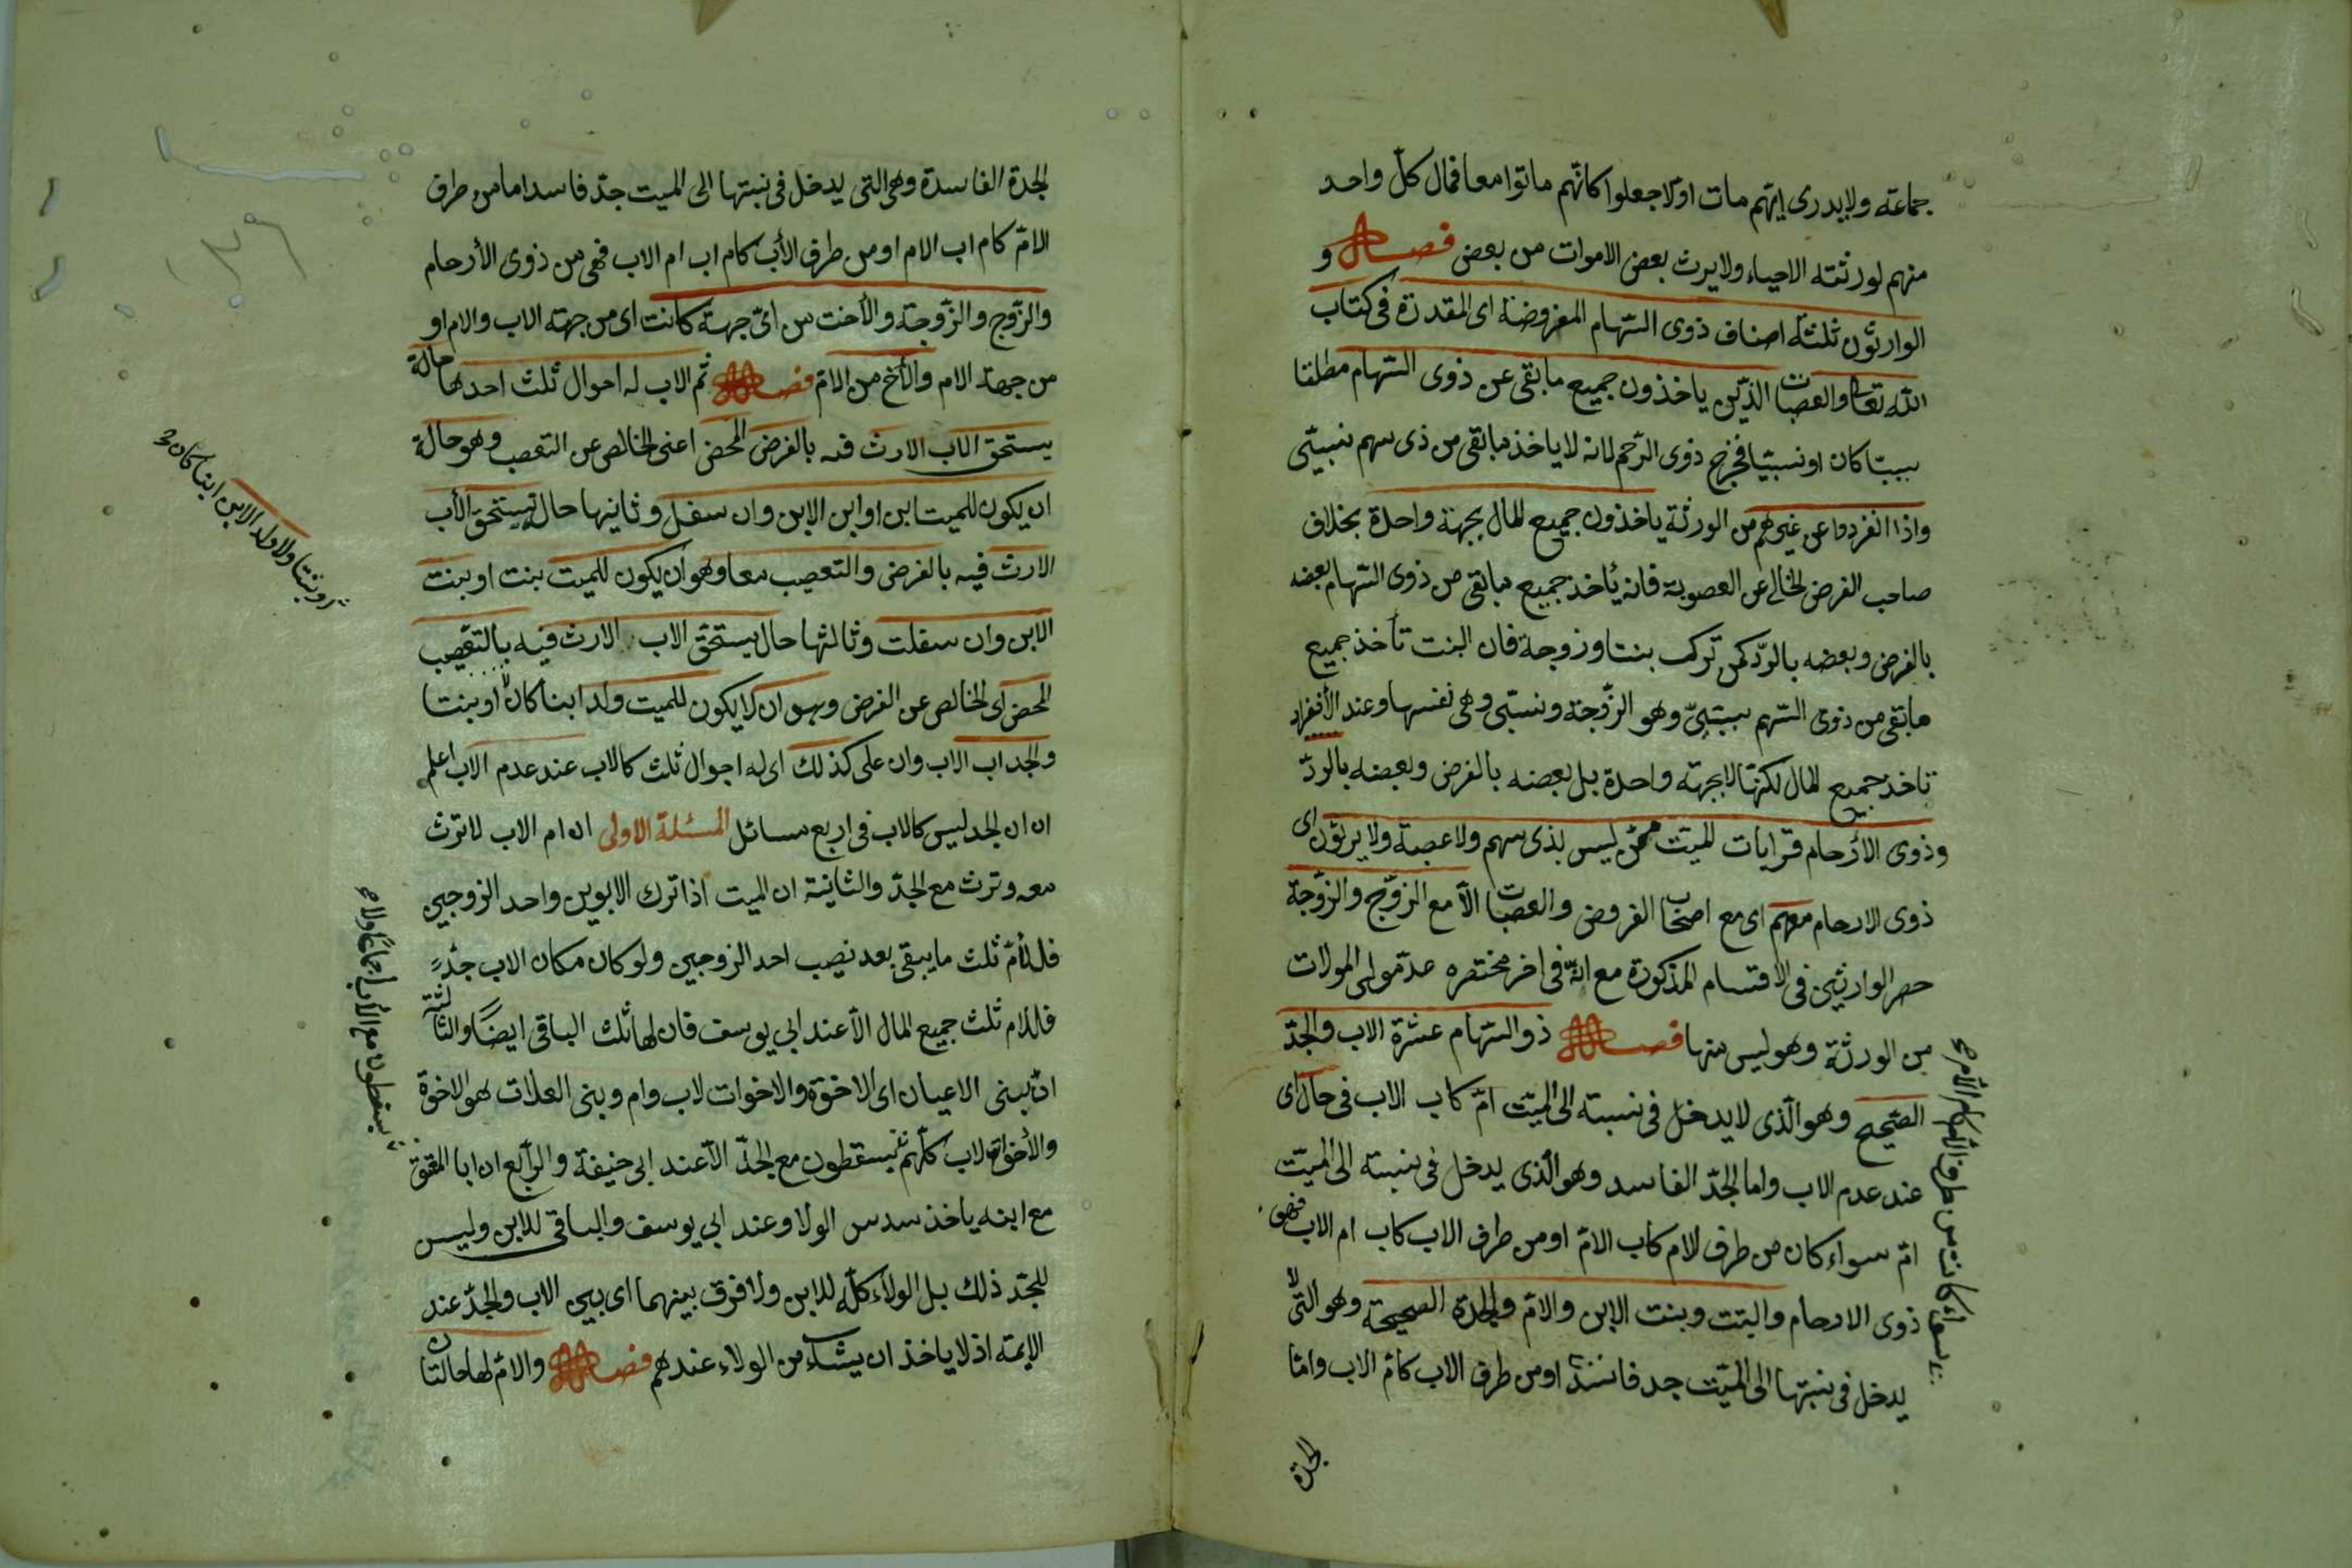 جماعة ولا يدرى ايّهم مات اوّلا جعلوا كانّهم ماتوا معا فمال كلّ واحد
منهم لورثته الاحياء ولا يرث بعض الاموات من بعض فصل و
الوارثون ثلثة اصناف ذوى السّهام المفروضة اى المقدرة فى كتاب
اللّه تعا والعصبات الذين ياخذون جميع ما بقى عن ذوى السّهام مطلقا
سببيّا كان او نسبيّا فخرج ذوى الرّحم لانه لا ياخذ ما بقى من ذى سهم نسبيّ
واذا انفردوا عن غيرهم من الورثة ياخذون جميع المال بجهة واحدة بخلاف
صاحب الفرض الخالى عن العصوبة فانه يأخذ جميع ما بقى من ذوى السّهام بعضه
بالفرض وبعضه بالردّ كمن ترك بنتا وزوجة فان البنت تأخذ جميع
ما بقى من ذوى السّهم سببىّ وهو الزّوجة ونسبى وهى نفسها وعند الأنفراد
تاخذ جميع المال لكنّها لا بجهة واحدة بل بعضه بالفرض وبعضه بالردّ
وذوى الأرحام قرابات الميت ممّن ليس بذى سهم ولا عصبة ولا يرثون اى
ذوى الارحام معهم اى مع اصحاب الفروض والعصبات الّا مع الزّوج والزّوجة
حصر الوارثين فى الاقسام المذكورة مع انّه فى اخر مختصره عدّ مولى الموالات
من الورثة وهو ليس منها فصل ذو السّهام عشرة الاب والجدّ
الصّحيح وهو الّذى لا يدخل فى نسبته الى الميّت امّ كاب الاب فى حال اى
عند عدم الاب واما الجدّ الفاسد وهو الّذى يدخل فى نسبته الى الميّت
امّ سواء كان من طرف الام كاب الامّ او من طرف الاب كاب ام الاب فهو
ذوى الارحام والبنت وبنت الابن والامّ والجدة الصحيحة وهو التّى لا
يدخل فى نسبتها الى الميّت جد فاسد او من طرف الاب كامّ الاب وامّا
سواء كانت من طرف الام كام الام
الجدة
الجدة الفاسدة وهى التى يدخل فى نسبتها الى الميت جدّ فاسد اما من طرف
الامّ كام اب الام او من طرف الأب كام اب ام الاب فهى من ذوى الأرحام
والزّوج والزّوجة والأخت من اىّ جهة كانت اى من جهة الاب والام او
من جهة الام والأخ من الامّ فصل ثم الاب له احوال ثلث احدها حالة
يستحق الاب الارث فيه بالفرض المحض اعنى الخالص عن التعصب وهو حالة
ان يكون للميت ابن او ابن الابن وان سفل وثانيها حال يستحق الأب
الارث فيه بالفرض والتعصيب معا وهو ان يكون للميت بنت او بنت
الابن وان سفلت وثالثها حال يستحقّ الاب الارث فيه بالتعّصيب
المحض اى الخالص عن الفرض وهو ان لا يكون للميت ولد ابنا كان او بنتا
والجد اب الاب وان على كذلك اى له احوال ثلث كالاب عند عدم الاب اعلم
ان ان الجد ليس كالاب فى اربع مسائل المسئلة الاولى ان ام الاب لا ترث
معه وترث مع الجدّ والثانية ان الميت اذا ترك الابوين واحد الزوجين
فللأمّ ثلث ما يبقى بعد نصيب احد الزوجين ولو كان مكان الاب جدّ
فللام ثلث جميع المال الّا عند ابى يوسف فان لها ثلث الباقى ايضاً والثالثة
انّ بنى الاعيان اى الاخوة والاخوات لاب وام وبنى العلات هو الاخوة
والأخوات لاب كلّهم يسقطون مع الجدّ الّا عند ابى حنيفة والرّابع ان ابا المعتق
مع ابنه ياخذ سدس الولا وعند ابى يوسف والباقى للابن وليس
للجدّ ذلك بل الولاء كلّه للابن ولا فرق بينهما اى بين الاب والجدّ عند
الايمة اذ لا ياخذ ان يشاء من الولاء عندهم فصل والامّ لها حالتان
او بنتا ولا ولد الابن ابنا كان
يسقطون مع الأب اجماعًا ولا